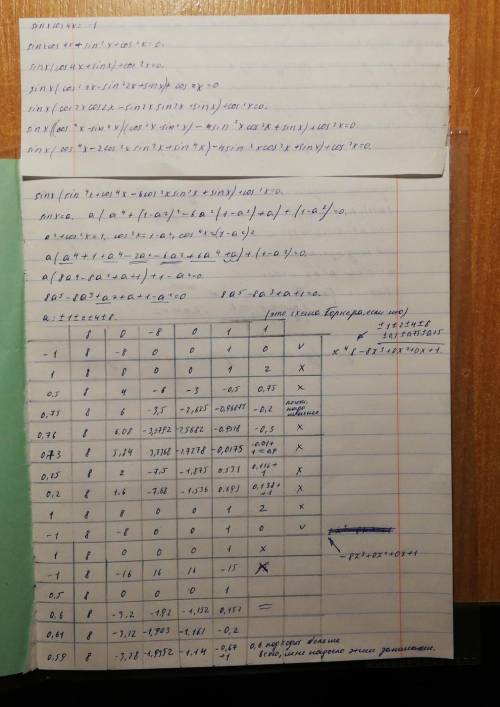 sinx cos4x = -1
sinx cos4x + sin²x + cos²x = 0.
sinx(cos4x + sinx) + cos²x = 0.
sinx(cos²2x - sin²2x + sinx) + cos²x = 0.
sinx(cos2x cos2x - sin2x sin2x + sinx) + cos²x = 0.
sinx((cos²x - sin²x)(cos²x - sin²x) - 4sin²x cos²x + sinx) + cos²x = 0.
sinx(cos⁴x - 2cos²x sin²x + sin⁴x) - 4sin²x cos²x + sinx) + cos²x = 0.
sinx(sin⁴x + cos⁴x - 6cos²x sin²x + sinx) + cos²x = 0.
sinx = a. a(a⁴ + (1-a²)² - 6a²(1-a²) + a) + (1-a²) = 0.
a² + cos²x = 1, cos²x = 1-a², cos⁴x = (1-a²)²
a(a⁴ + 1 + a⁴ - 2a² - 6a² + 6a⁴ + a) + (1-a²) = 0.
a(8a⁴ - 8a² + a + 1) + 1 - a² = 0.
8a⁵ - 8a³ + a² + a + 1 - a² = 0 8a⁵ - 8a³ + a + 1 = 0.
a: ±1 ±2 ±4 ±8. (это схема Горнера, если что)
8 0 -8 0 1 1 ±1 ±2 ±4 ±8
-1 8 -8 0 0 1 0 v
1 8 8 0 0 1 2 x
0,5 8 4 -6 -3 -0,5 0,75 x
0,75 8 6 -3,5 -2,625 -0,96875 -0,2
0,76 8 6,08 -0,3 x
0,73 8 5,84 -0,0175 x
0,25 8 2 -7,5 -1,875 0,531 x
0,2 8 1,6 -7,68 -1,536 0,693 x
1 8 8 0 0 1 2 x
-1 8 -8 0 0 1 0 v
1 8 0 0 0 1 x
-1 8 -16 16 16 -15 x
0,5 8 0 0 0 1
0,6 8 -3,2 -1,92 -1,152 0,152 =
0,61 8 -3,12 -1,903 -1,161 -0,2
0,59 8 -3,28 -1,9352 -1,14 0,6 подходит больше
всего, мне надоело этим заниматься.